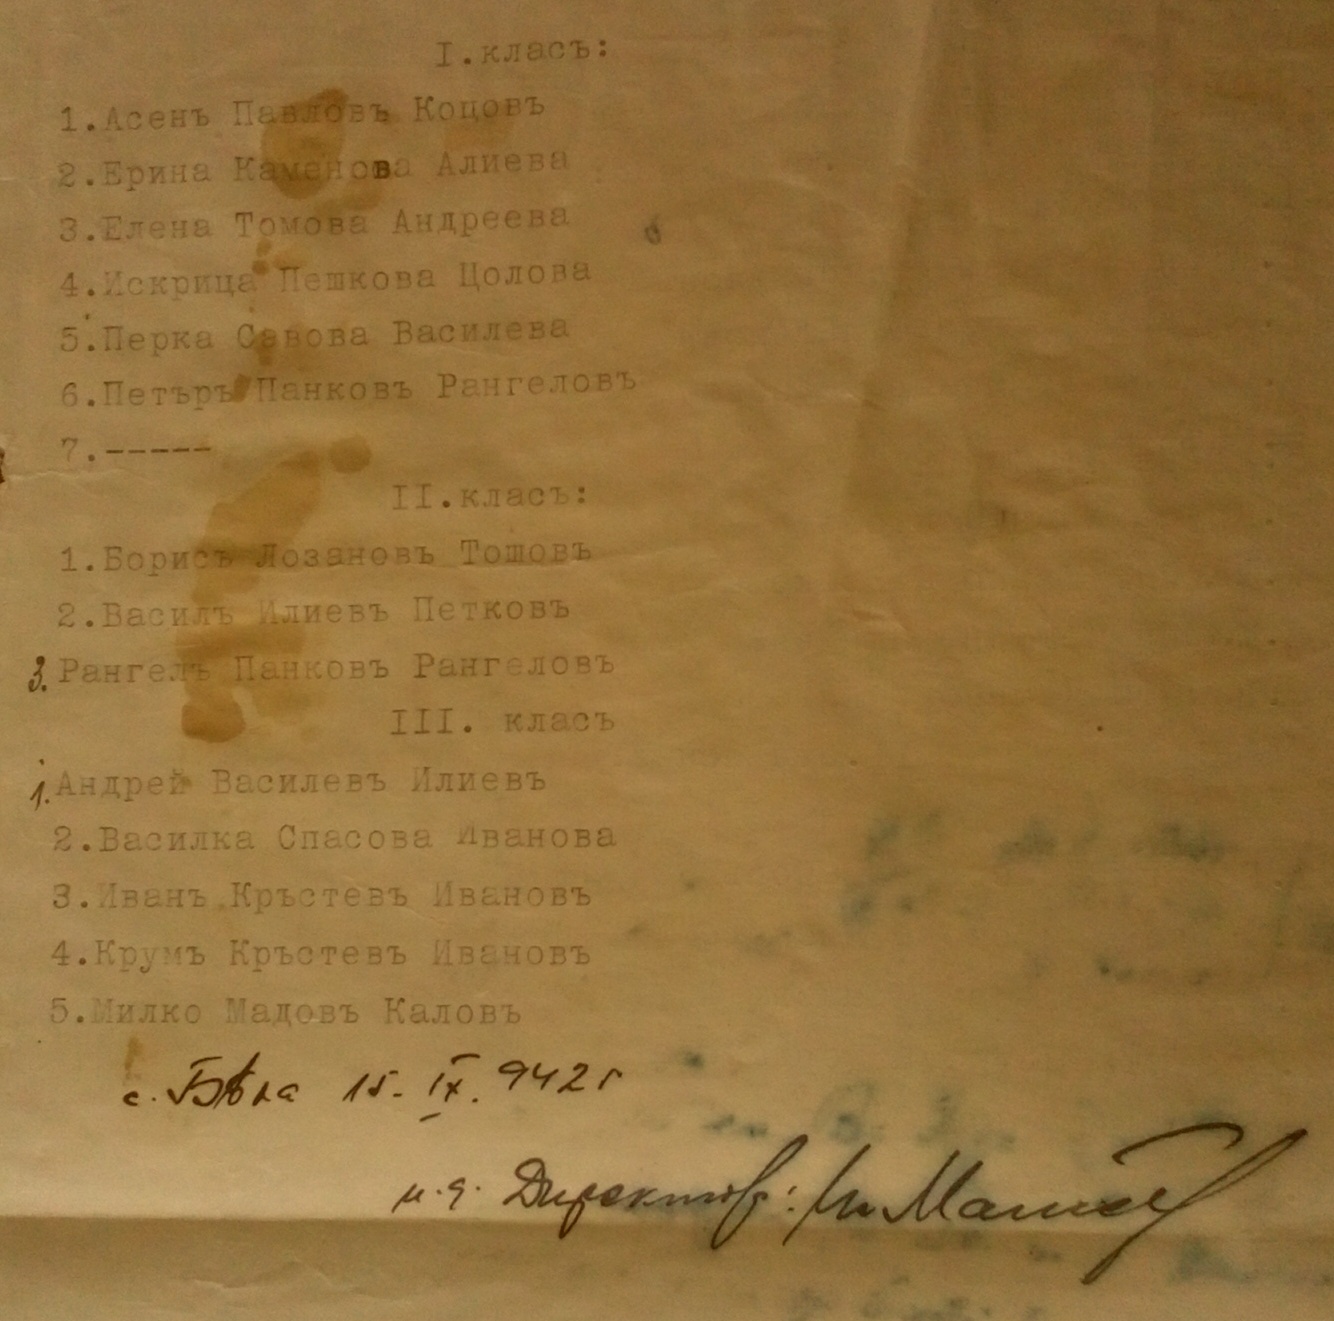 I.класъ:
1.Асенъ Павловъ Коцовъ
2.Ерина Каменова Алиева
3.Елена Томова Андреева
4.Искрица Пешкова Цолова
5.Перка Савова Василева
6.Петъръ Панковъ Рангеловъ
7.-----
II.класъ:
1.Борисъ Лозановъ Тошовъ
2.Василъ Илиевъ Петковъ
3.Рангелъ Панковъ Рангеловъ
III. класъ
1.Андрей Василевъ Илиевъ
2.Василка Спасова Иванова
3.Иванъ Кръстевъ Ивановъ
4.Крумъ Кръстевъ Ивановъ
5.Милко Мадовъ Каловъ
с. Бѣла 15. IX. 942 г
Директоръ: